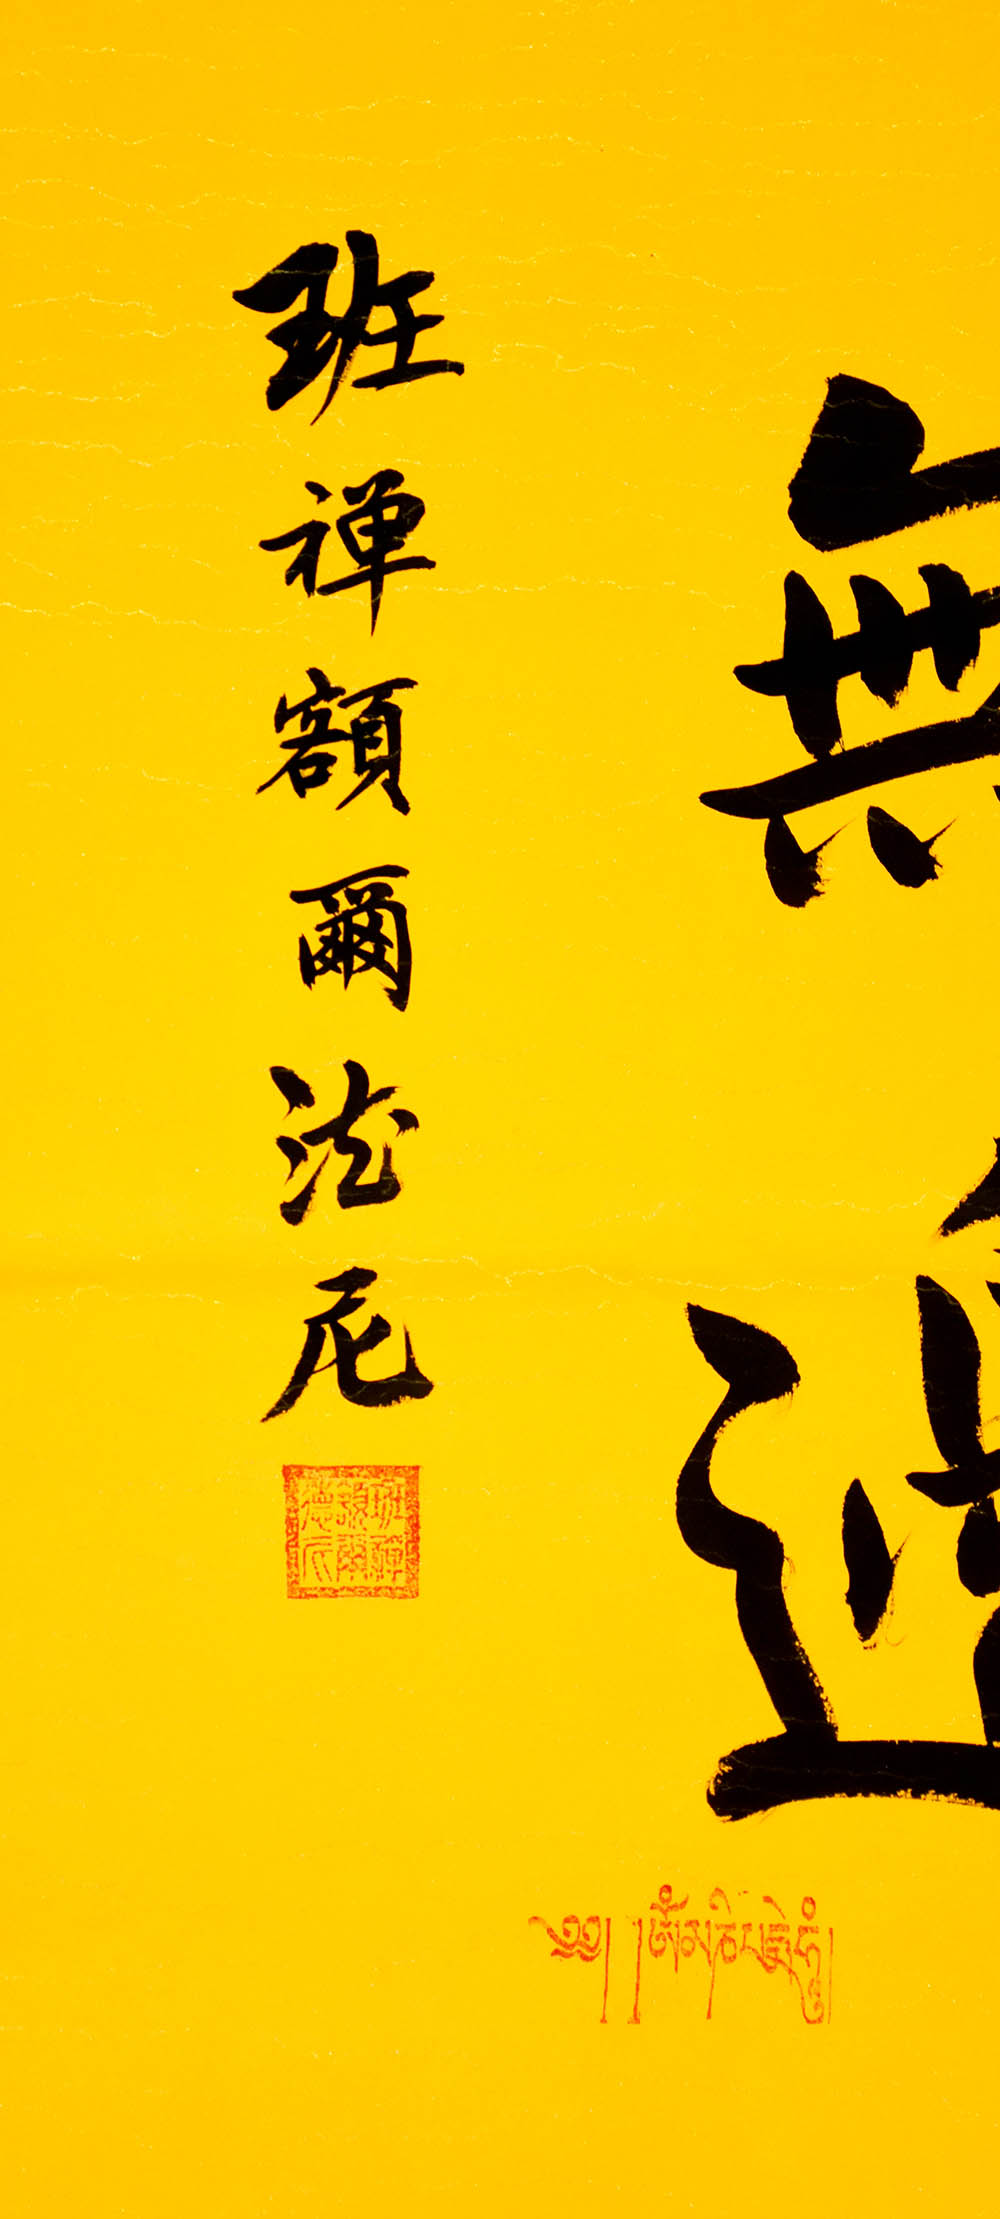 無
班禅額爾德尼
班禪額爾德尼
༄༅། །ཨོཾ་མ་ཎི་པདྨེ་ཧཱུྃ།